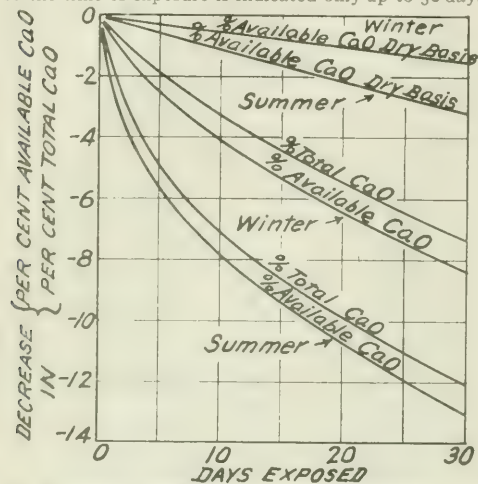 time of exposure is indicated only up to 30 days
DECREASE IN { PER CENT AVAILABLE CaO
PER CENT TOTAL CaO
0
-2
-4
-6
-8
-10
-12
-14
Winter
% Available CaO Dry Basis
% Available CaO Dry Basis
Summer
% Total CaO
% Available CaO
Winter
% Total CaO
% Available CaO
Summer
0
10
20
30
DAYS EXPOSED